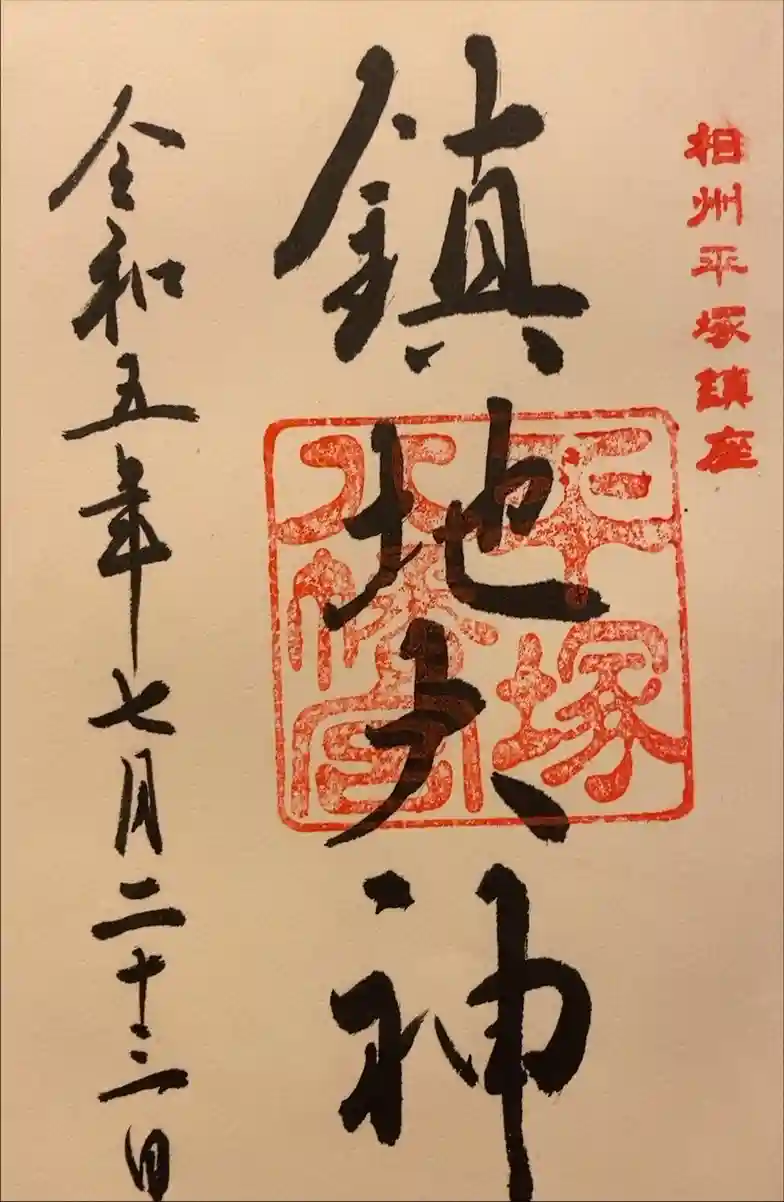 相州平塚鎮座
鎮地大神
平塚
八幡宮
令和五年七月二十三日